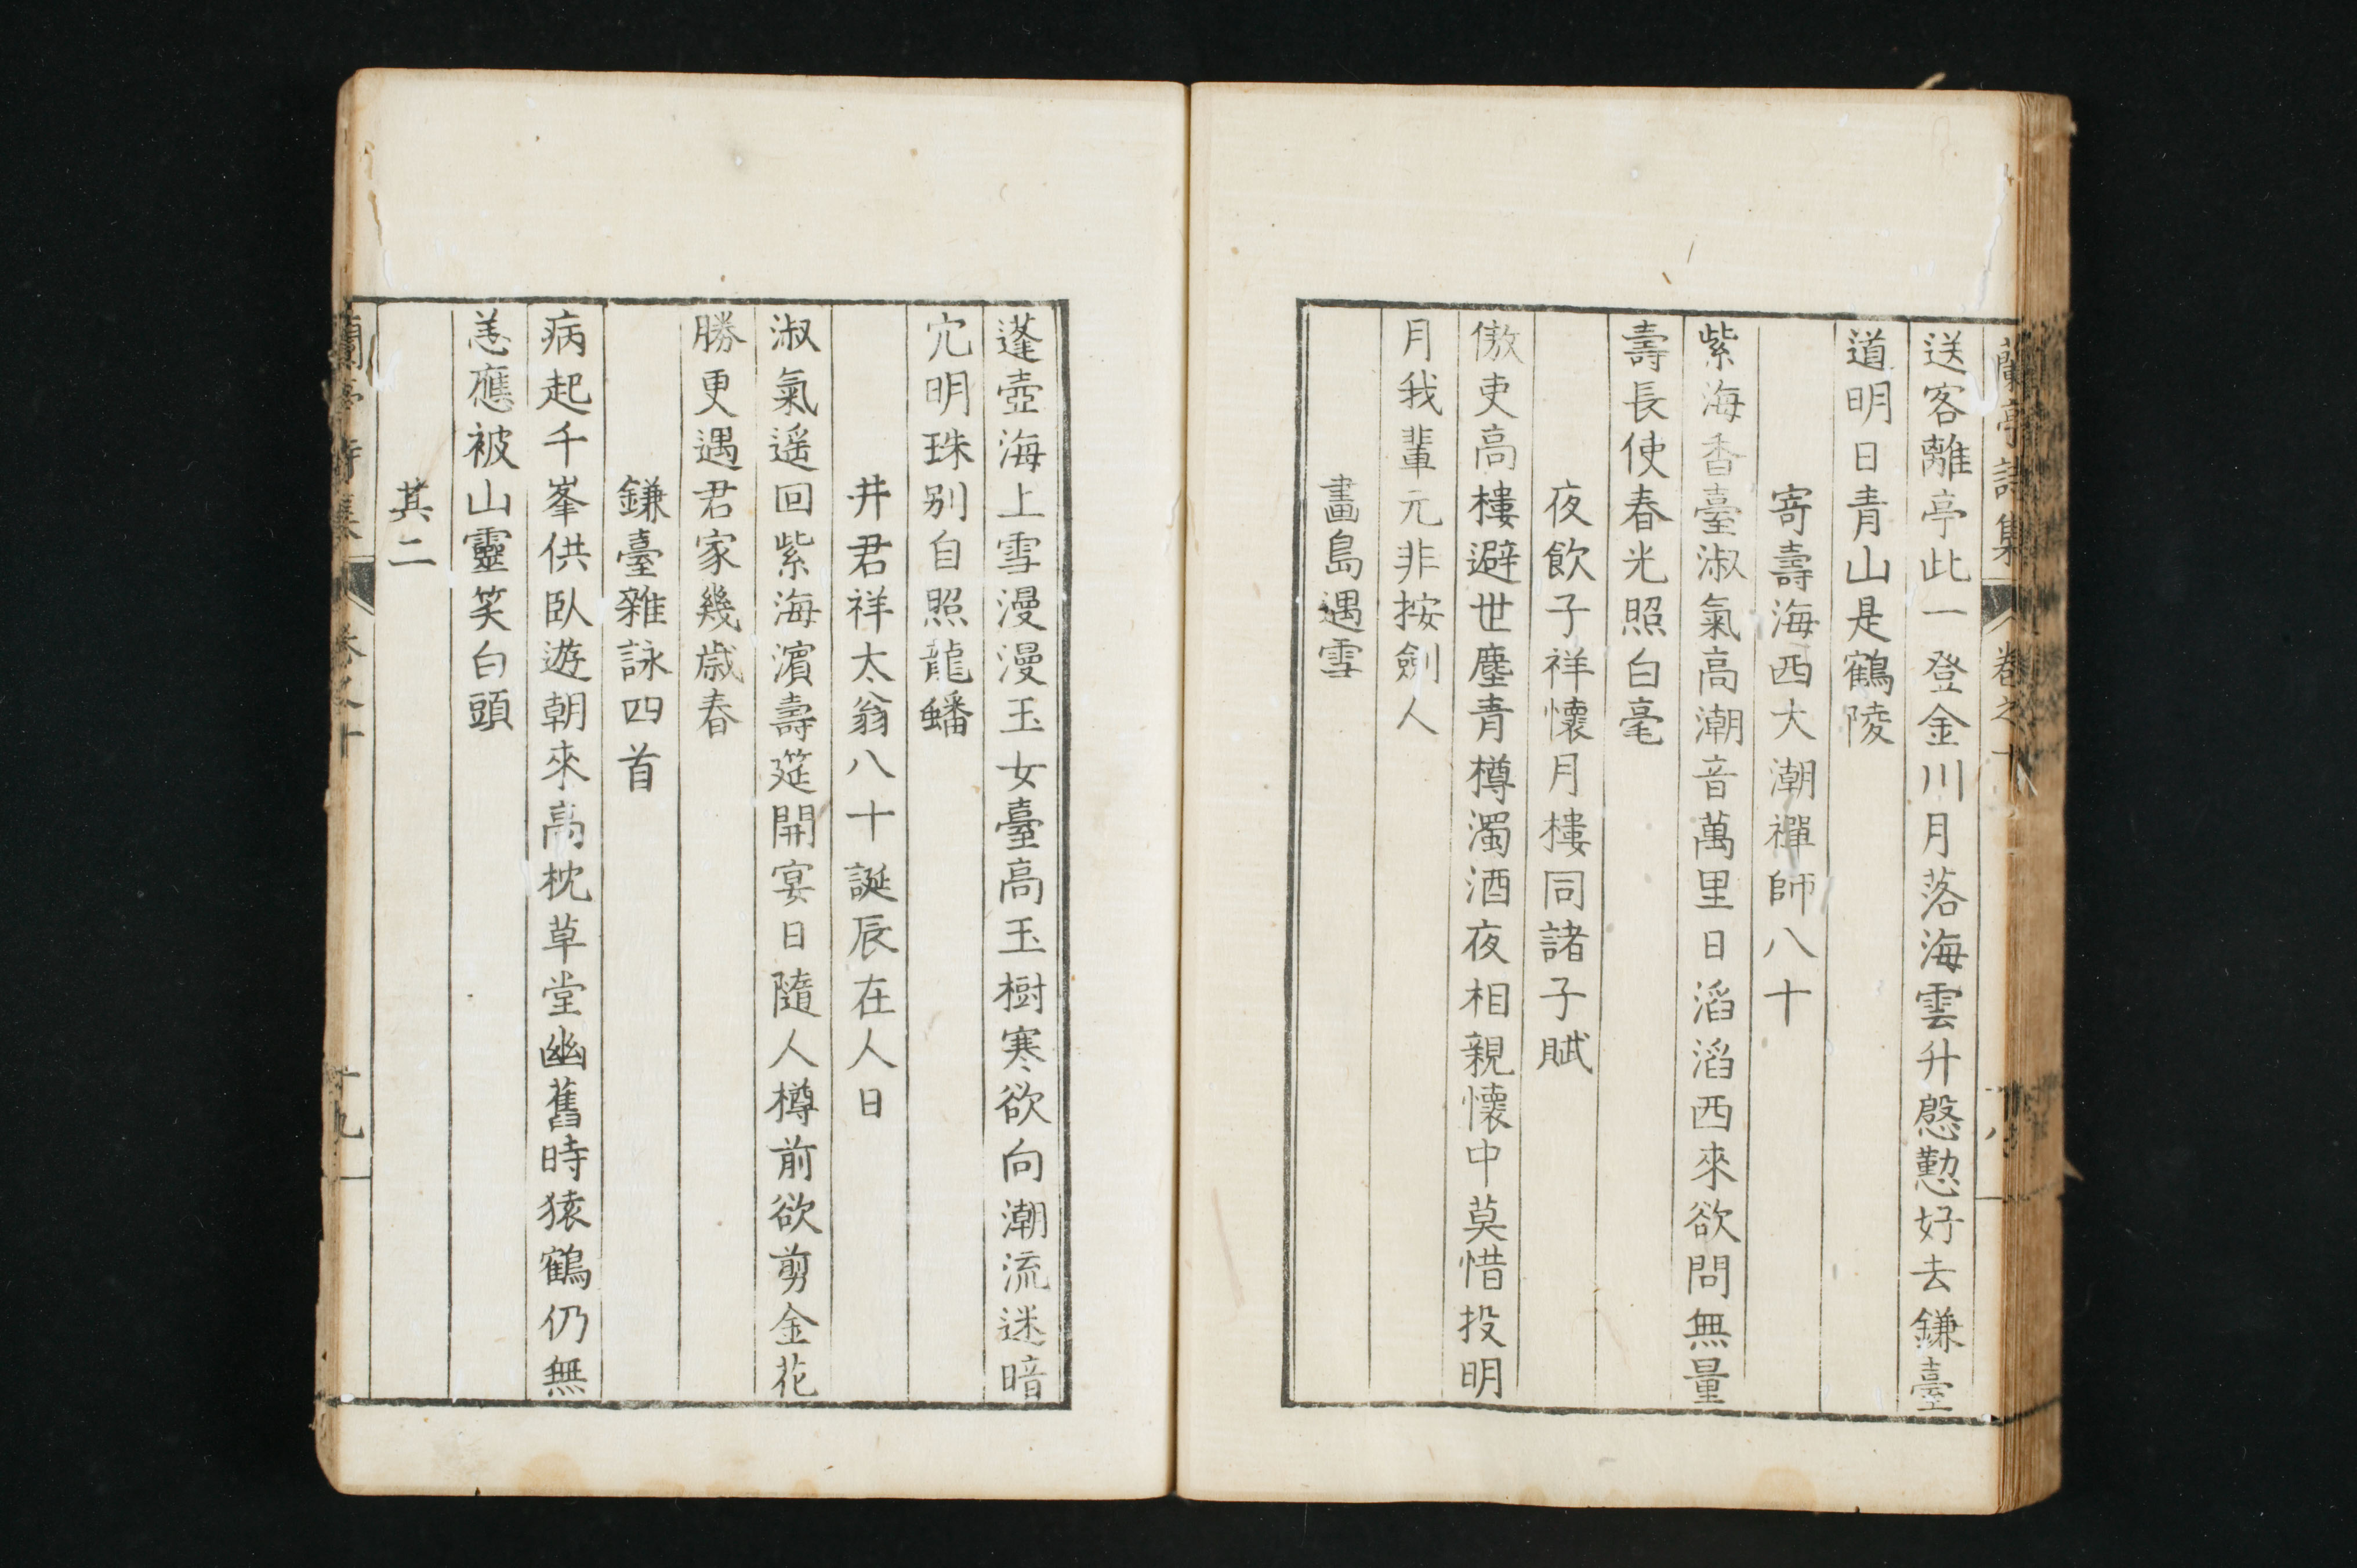 蘭亭詩集 卷之十
送客離亭此一登金川月落海雲升慇懃好去鎌臺
道明日青山是鶴陵
寄壽海西大潮禪師八十
紫海香臺淑氣高潮音萬里日滔滔西來欲問無量
壽長使春光照白毫
夜飲子祥懷月樓同諸子賦
傲吏高樓避世塵青樽濁酒夜相親懷中莫惜投明
月我輩元非按劍人
畫島遇雪
蓬壺海上雪漫漫玉女臺高玉樹寒欲向潮流迷暗
穴明珠别自照龍蟠
井君祥太翁八十誕辰在人日
淑氣遥回紫海濵壽筵開宴日隨人樽前欲剪金花
勝更遇君家幾歳春
鎌臺雜詠四首
病起千峯供臥遊朝來高枕草堂幽舊時猿鶴仍無
恙應被山靈笑白頭
其二
蘭亭詩集 卷之十 十九